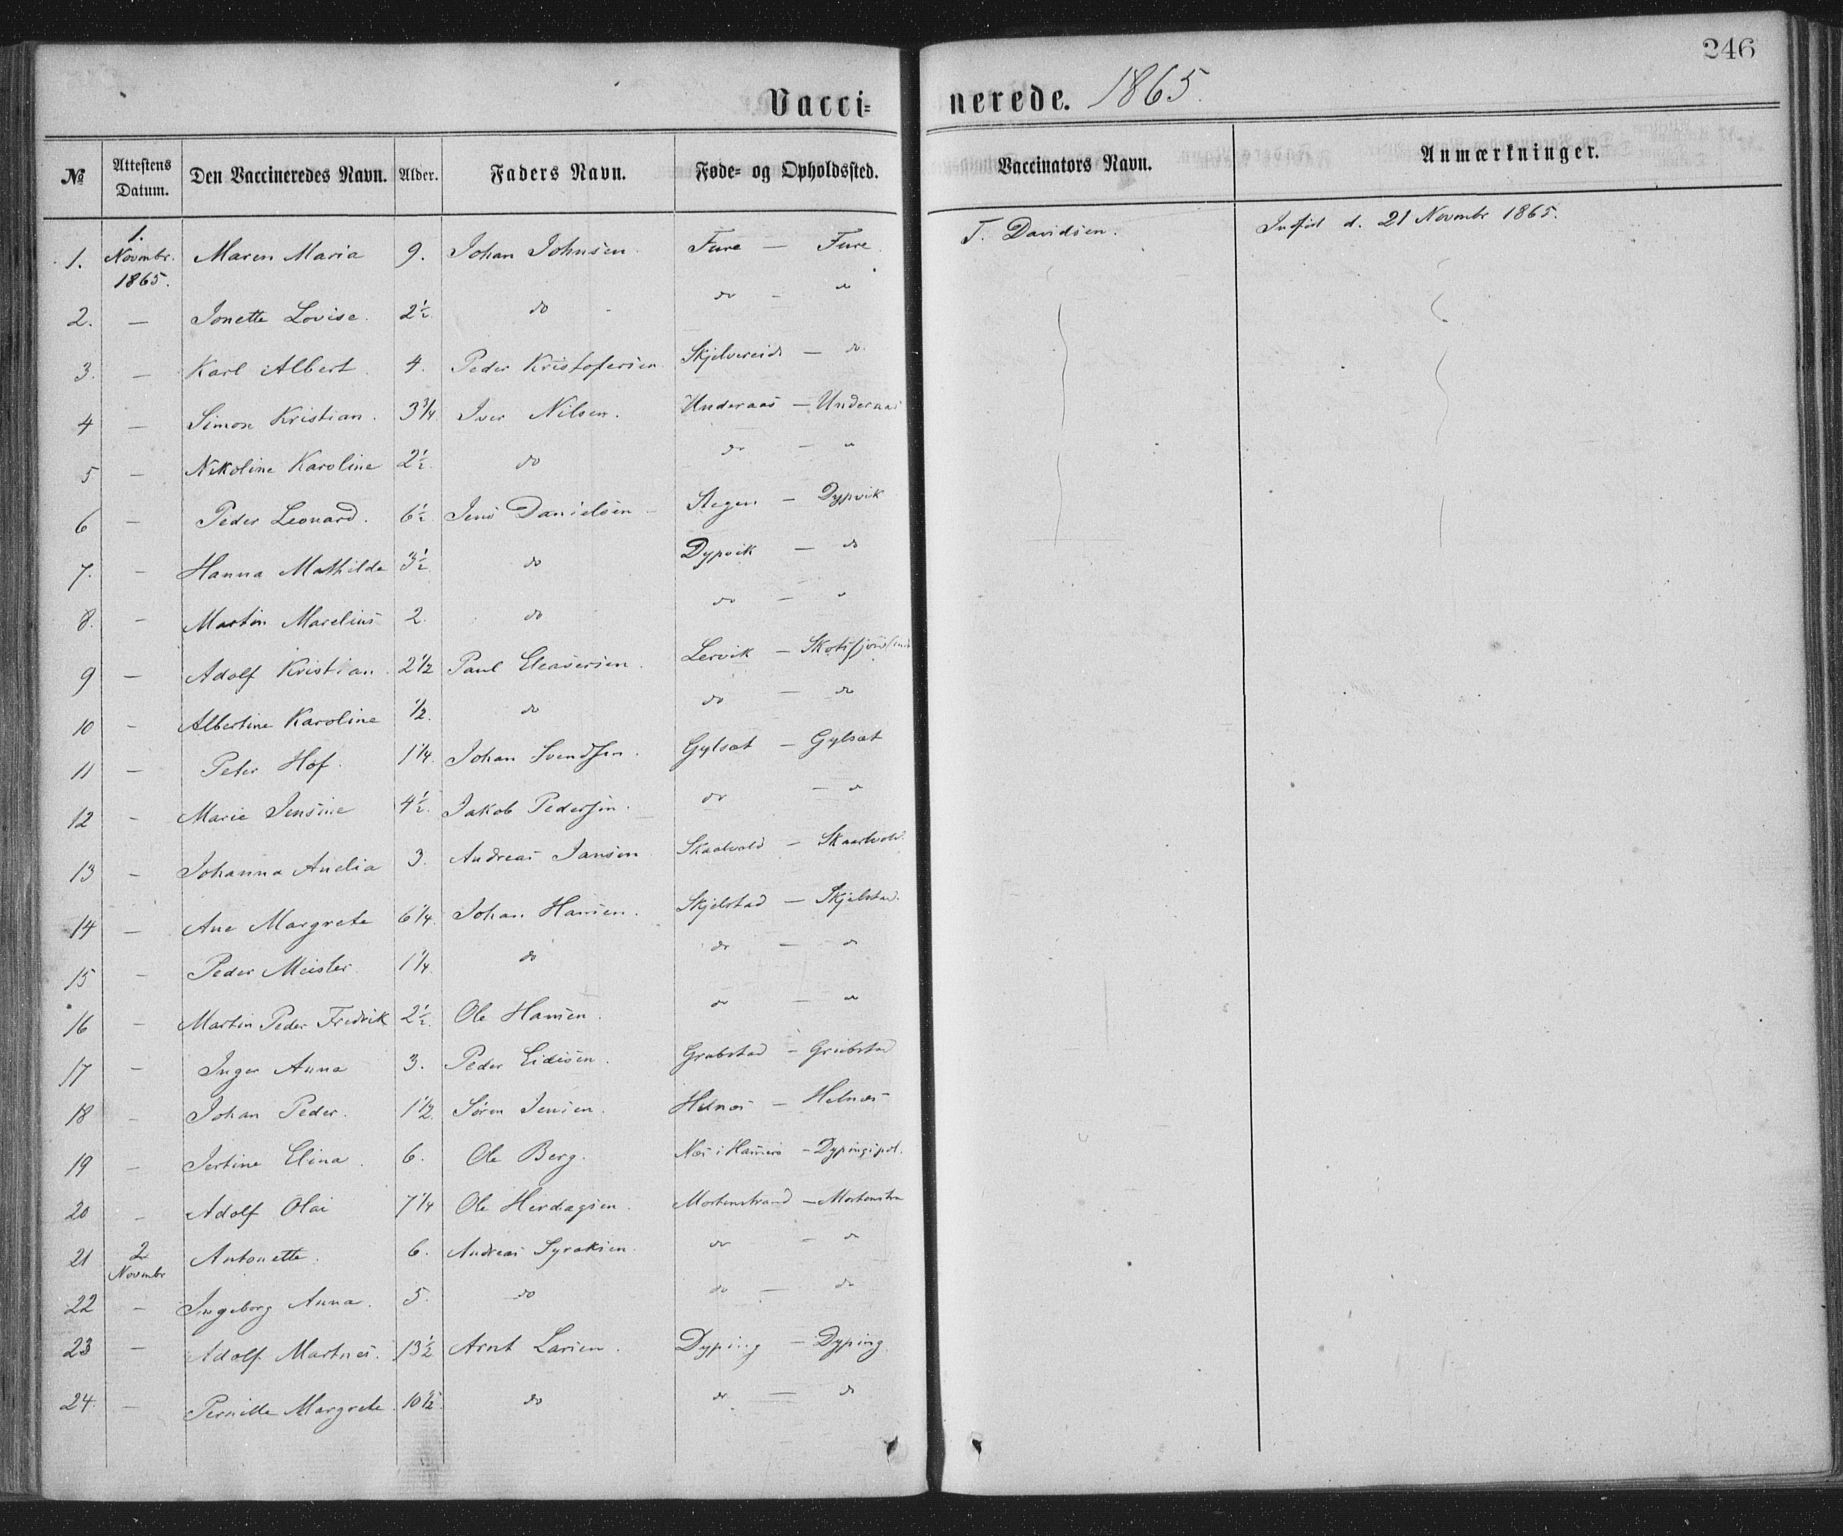 246
Vacci= nerede. 1865.
№ Attestens Datum. Den Vaccineredes Navn. Alder. Faders Navn. Føde= og Opholdssted. Vaccinators Navn. Anmærkninger.
1. 1. Novmbr. 1865. Maren Maria 9. Johan Johnsen. Fure — Fure. T. Davidsen. d. 21 Novmbr 1865.
2. — Jonette Lovise. 2½ do do — "
3. — Karl Albert. 4. Peder Kristofersen Skjelvereid — do.
4 — Simon Kristian. 3¾. Iver Nilsen. Underaas — Underaas
5 — Nikoline Karoline 2½. do do — "
6 — Peder Leonard. 6½. Jens Danielsen — Stegen — Dypvik
7. — Hanna Mathilde 3½. do Dypvik — do
8. — Martin Marelius 2. do do — "
9 — Adolf Kristian. 2½ Paul Eleasersen. Lervik —
10 — Albertine Karoline ½. do do — do
11 — Peter Hof. 1¼. Johan Svendsen. Gylset — Gylset
12 — Marie Jensine 4½. Jakob Pedersen. do — "
13 — Johanna Amelia 3. Andreas Jansen Skaalvold — Skaalvold.
14 — Ane Margrete 6¼. Johan Hansen. Skjelstad — Skjelstad.
15 — Peder Meister 1¼. do do — "
16 — Martin Peder Fredrik 2½. Ole Hansen. do — "
17 — Inger Anna 3. Peder Eidisen. Grøbstad — Grøbstad
18 — Johan Peder. 1½. Sören Jensen. Helnæs — Helnæs
19 — Jertine Elina. 6. Ole Berg. Næs i Hamerø —
20 — Adolf Olai 7¼ Ole Herdagsen. Mortenstrand — Mortenstra
21 2 Novmbr Antonette. 6. Andreas Syraksen. do — do
22 — Ingeborg Anna. 5. do do — do
23 — Adolf Martnes. 13½ Arnt Larsen. Dyping — Dyping
24. — Pernille Margrete. 10½ do do — do